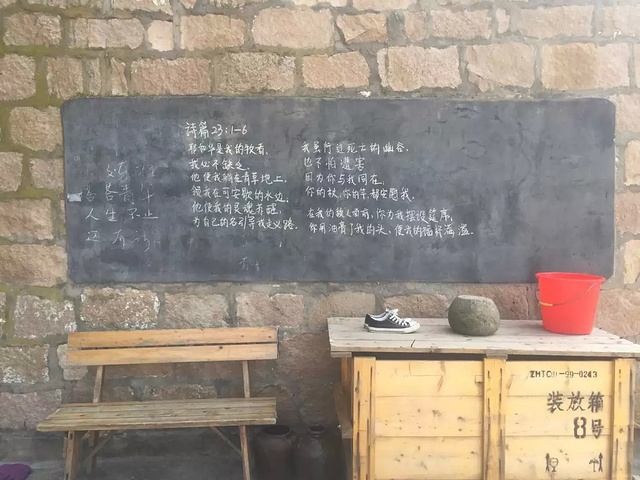 詩篇23:1-6
耶和华是我的牧者,
我必不缺乏
他使我躺在青草地上,
领我在可安歇的水边,
他使我的灵魂苏醒,
为自己的名引导我走义路.
我虽行过死的幽谷,
也不怕遭害
因为你与我同在,
你的杖,你的竿,都安慰我.
在我的敌人面前,你为我摆设筵席,
你用油膏了我的头,使我的福杯满溢.
人生不止
-99-0243
装放箱
8号